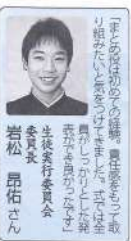 「まとめ役は初めての経験。責任感をもって取
り組みたいと気をつけてきました。式では全
員がしっかりとした発
表ができ良かったです」
生徒実行委員会
委員長
岩松 昂佑さん